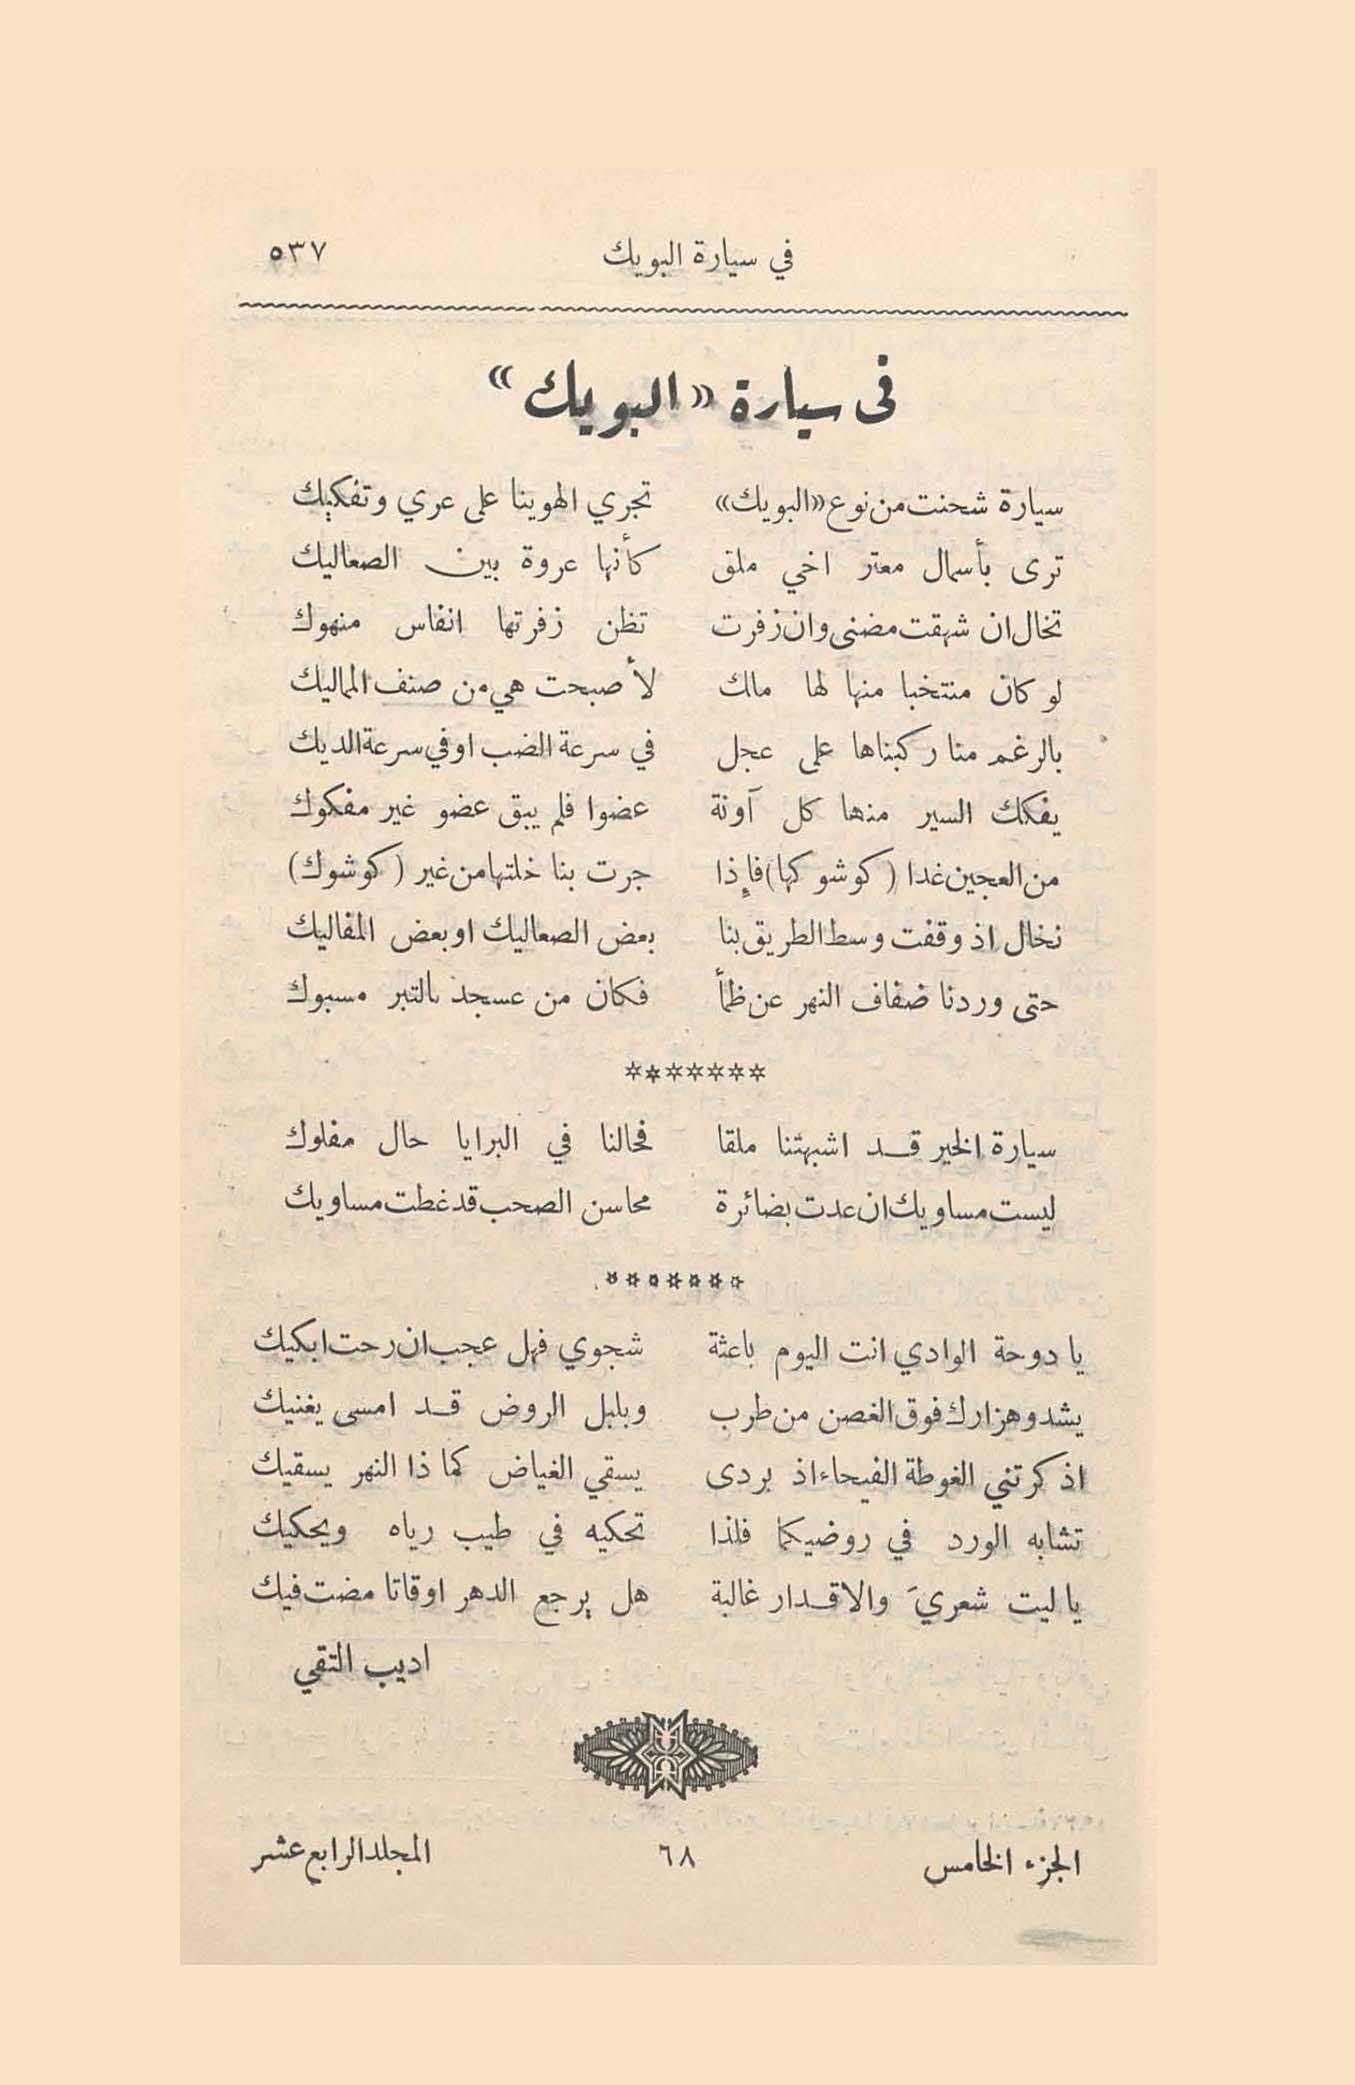 في سيارة البويك ٥٣٧
فى سيارة «البويك»
سيارة شحنت من نوع «البويك» تجري الهوينا على عري وتفكيك
ترى بأسمال معتر اخي ملق كأنها عروة بين الصعاليك
تخال ان شهقت مضنى وان زفرت تظن زفرتها انفاس منهوك
لو كان منتخبا منها لها مالك لأصبحت هي من صنف المماليك
بالرغم منا ركبناها على عجل في سرعة الضب او في سرعة الديك
يفكك السير منها كل آونة عضوا فلم يبق عضو غير مفكوك
من العجين غدا (كوشوكها) فإذا جرت بنا خلتها من غير (كوشوك)
نخال اذ وقفت وسط الطريق بنا بعض الصعاليك او بعض المفاليك
حتى وردنا ضفاف النهر عن ظمأ فكان من عسجد بالتبر مسبوك
*******
سيارة الخير قد اشبهتنا ملقا فحالنا في البرايا حال مفلوك
ليست مساويك ان عدت بضائرة محاسن الصحب قد غطت مساويك
*******
يا دوحة الوادي انت اليوم باعثة شجوي فهل عجب ان رحت ابكيك
يشدو هزارك فوق الغصن من طرب وبلبل الروض قد امسى يغنيك
اذكرتني الغوطة الفيحاء اذ بردى يسقي الغياض كما ذا النهر يسقيك
تشابه الورد في روضيكما فلذا تحكيه في طيب رياه ويحكيك
يا ليت شعريَ والاقدار غالبة هل يرجع الدهر اوقاتا مضت فيك
اديب التقي
الجزء الخامس ٦٨ المجلد الرابع عشر